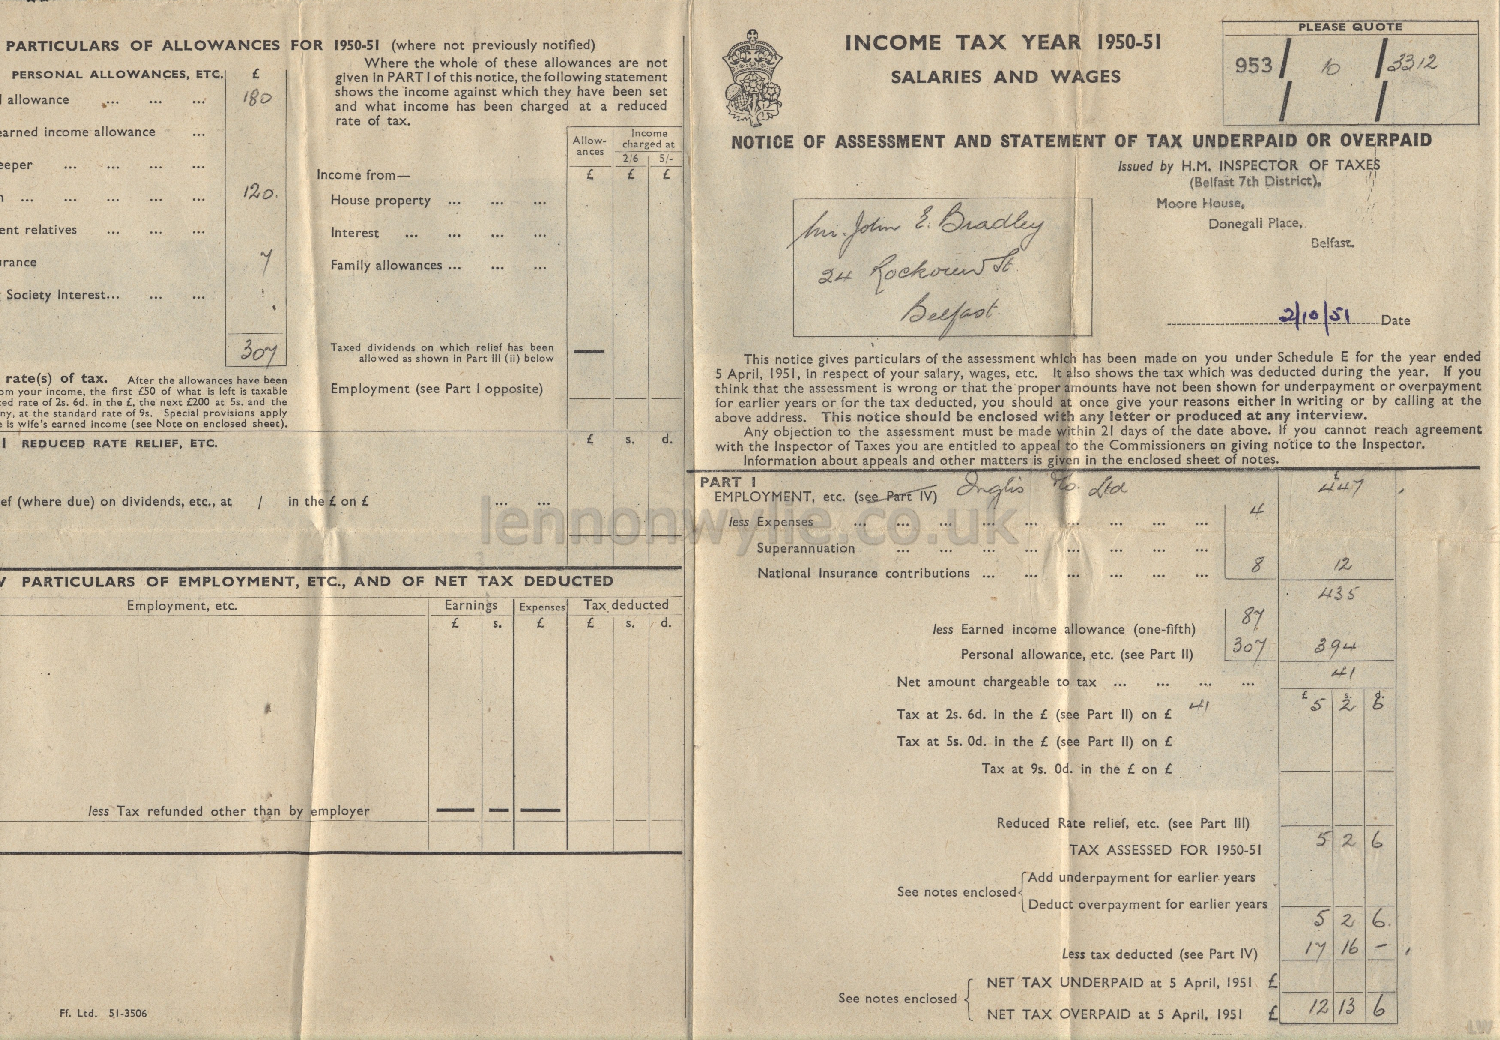 PARTICULARS OF ALLOWANCES FOR 1950-51 (where not previously notified)
PERSONAL ALLOWANCES, ETC. £
l allowance ... ... ... 180
earned income allowance ...
eeper ... ... ... ...
n ... ... ... ... ... 120.
ent relatives ... ... ...
urance 7
Society Interest... ... ...
307
rate(s) of tax. After the allowances have been
om your income, the first £50 of what is left is taxable
ed rate of 2s. 6d. in the £, the next £200 at 5s. and the
ny, at the standard rate of 9s. Special provisions apply
e is wife's earned income (see Note on enclosed sheet).
I REDUCED RATE RELIEF, ETC.
ef (where due) on dividends, etc., at / in the £ on £ ... ...
Where the whole of these allowances are not
given in PART I of this notice, the following statement
shows the income against which they have been set
and what income has been charged at a reduced
rate of tax.
Allow-
ances
Income
charged at
2/6 5/-
Income from— £ £ £
House property ... ... ...
Interest ... ... ... ...
Family allowances ... ... ...
Taxed dividends on which relief has been
allowed as shown in Part III (ii) below
Employment (see Part I opposite)
£ s. d.
V PARTICULARS OF EMPLOYMENT, ETC., AND OF NET TAX DEDUCTED
Employment, etc. Earnings Expenses Tax deducted
£ s. £ £ s. d.
less Tax refunded other than by employer
Ff. Ltd. 51-3506
INCOME TAX YEAR 1950-51
SALARIES AND WAGES
PLEASE QUOTE
953 / 10 / 3312
/ /
NOTICE OF ASSESSMENT AND STATEMENT OF TAX UNDERPAID OR OVERPAID
Issued by H.M. INSPECTOR OF TAXES
(Belfast 7th District),
Moore House,
Donegall Place,
Belfast.
Mr. John E. Bradley
24 Rockview St.
Belfast
2/10/51 Date
This notice gives particulars of the assessment which has been made on you under Schedule E for the year ended
5 April, 1951, in respect of your salary, wages, etc. It also shows the tax which was deducted during the year. If you
think that the assessment is wrong or that the proper amounts have not been shown for underpayment or overpayment
for earlier years or for the tax deducted, you should at once give your reasons either in writing or by calling at the
above address. This notice should be enclosed with any letter or produced at any interview.
Any objection to the assessment must be made within 21 days of the date above. If you cannot reach agreement
with the Inspector of Taxes you are entitled to appeal to the Commissioners on giving notice to the Inspector.
Information about appeals and other matters is given in the enclosed sheet of notes.
PART I £
EMPLOYMENT, etc. (see Part IV) Inglis & Co. Ltd 447
less Expenses ... ... ... ... ... ... ... ... ... 4
Superannuation ... ... ... ... ... ... ... ...
National Insurance contributions ... ... ... ... ... ... 8 12
435
less Earned income allowance (one-fifth) 87
Personal allowance, etc. (see Part II) 307 394
Net amount chargeable to tax ... ... ... ... 41
£ s. d.
Tax at 2s. 6d. in the £ (see Part II) on £ 41 5 2 6
Tax at 5s. 0d. in the £ (see Part II) on £
Tax at 9s. 0d. in the £ on £
Reduced Rate relief, etc. (see Part III)
TAX ASSESSED FOR 1950-51 5 2 6
See notes enclosed
Add underpayment for earlier years
Deduct overpayment for earlier years
5 2 6.
Less tax deducted (see Part IV) 17 16 -
See notes enclosed
NET TAX UNDERPAID at 5 April, 1951 £
NET TAX OVERPAID at 5 April, 1951 £ 12 13 6
lennonwylie.co.uk
LW